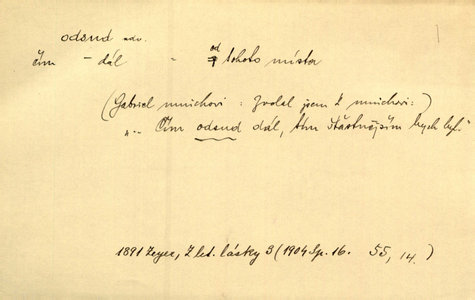 odsud adv.
čím – dál " od tohoto místa
(Gabriel mnichovi : Zvolal jsem k mnichovi:)
„.. Čím odsud dál, tím šťastnějším bych byl.“
1891 Zeyer, Z let. lásky 3 (1904 Sp. 16. 55, 14.)